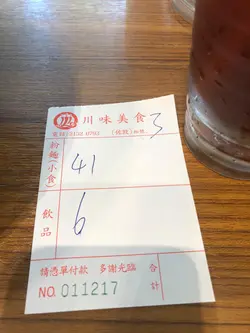 川味美食 3
粉麵(小食) 41
飲品 6
請憑單付款 多謝光臨 合計
NO. 011217